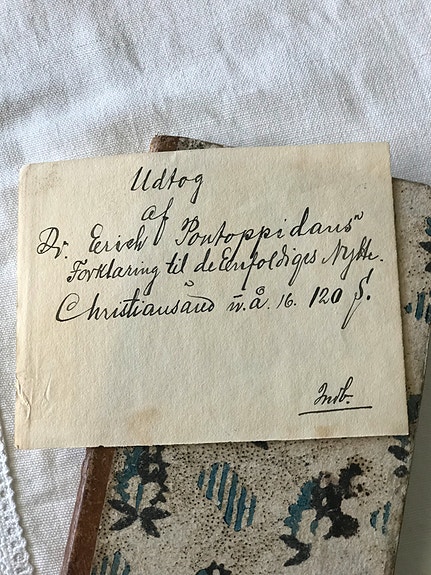 Udtog
af
Dr. Erich Pontoppidans
Forklaring til de Eenfoldiges Nytte.
Christiansand u. å. 16. 120 S.
Indb.